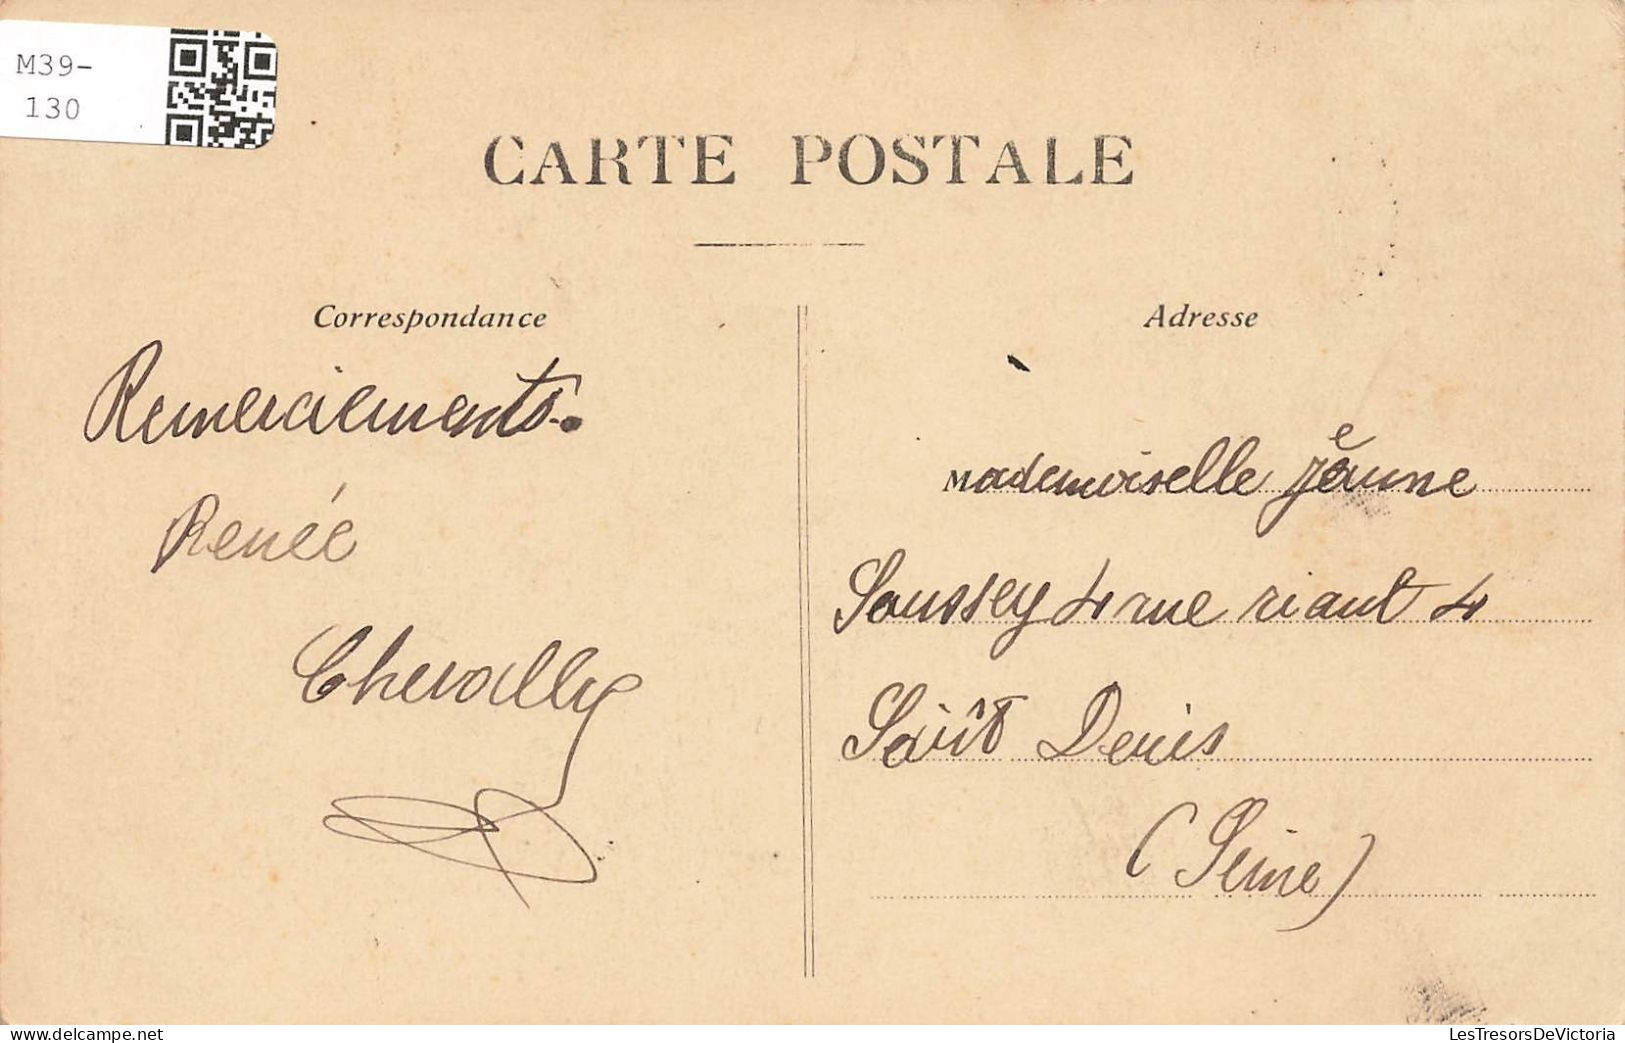 M39-
130
CARTE POSTALE
Correspondance
Remerciements.
Renée
Chevally
Adresse
Mademoiselle Jeanne
Soussey 4 rue riant 4
Saint Denis
(Seine)
LesTresorsDeVictoria